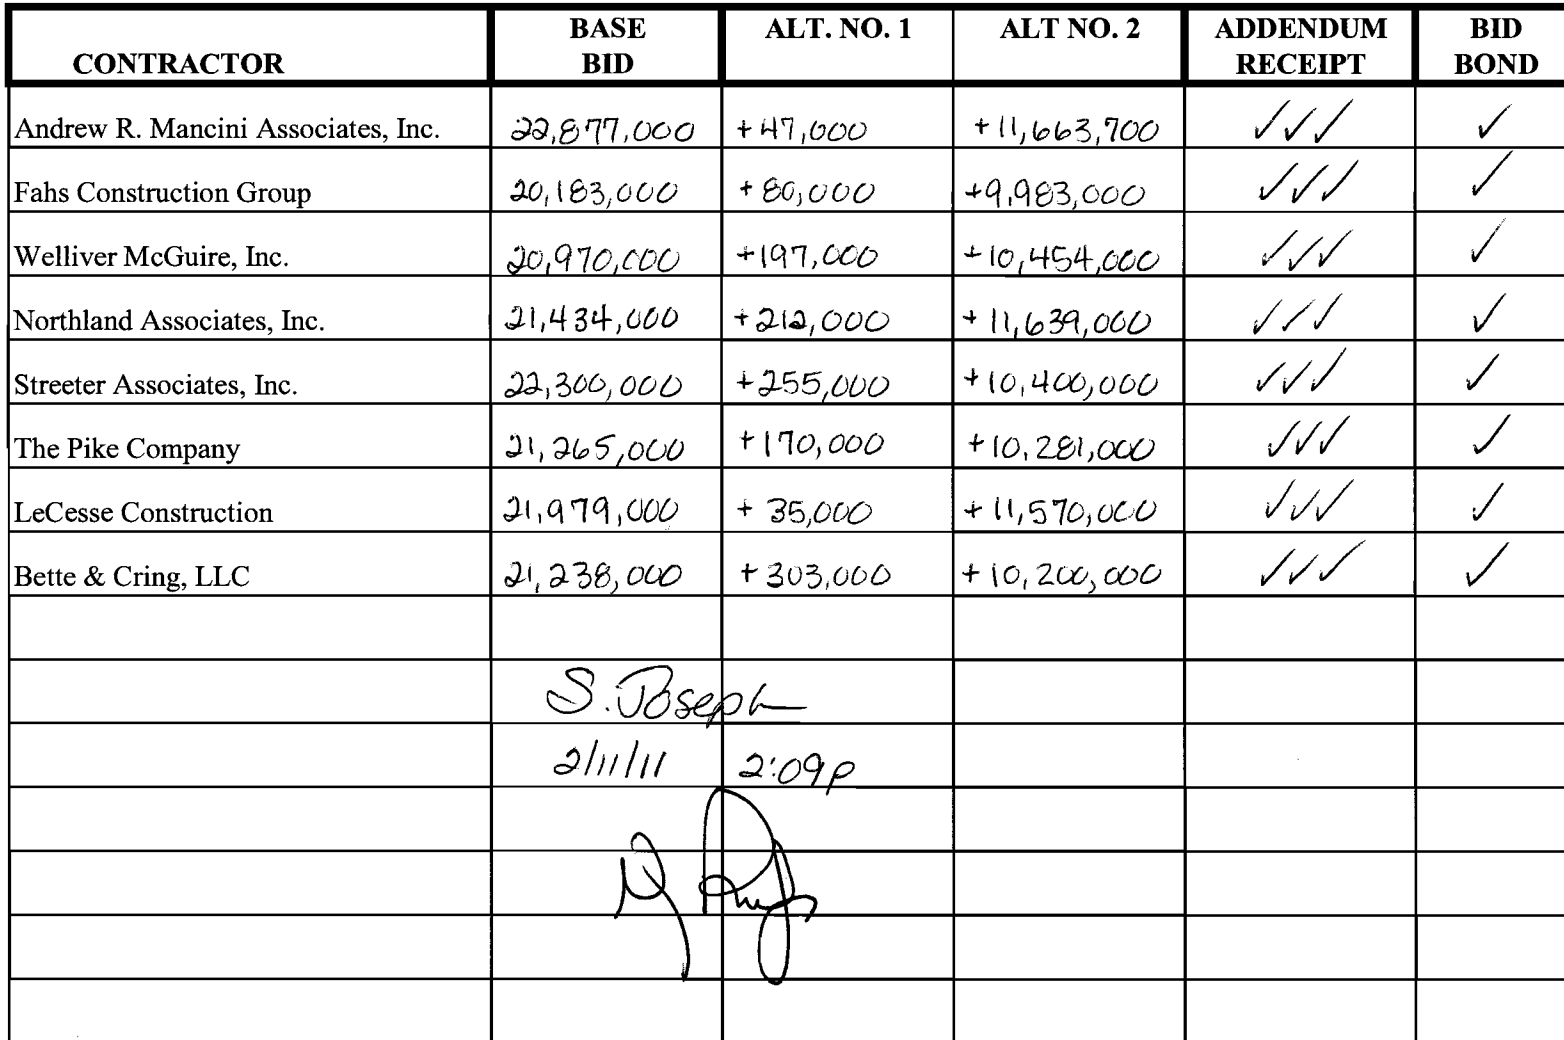 CONTRACTOR BASE BID ALT. NO. 1 ALT NO. 2 ADDENDUM RECEIPT BID BOND
Andrew R. Mancini Associates, Inc. 22,877,000 +47,000 +11,663,700 ✓✓✓ ✓
Fahs Construction Group 20,183,000 +80,000 +9,983,000 ✓✓✓ ✓
Welliver McGuire, Inc. 20,970,000 +197,000 +10,454,000 ✓✓✓ ✓
Northland Associates, Inc. 21,434,000 +212,000 +11,639,000 ✓✓✓ ✓
Streeter Associates, Inc. 22,300,000 +255,000 +10,400,000 ✓✓✓ ✓
The Pike Company 21,265,000 +170,000 +10,281,000 ✓✓✓ ✓
LeCesse Construction 21,979,000 +35,000 +11,570,000 ✓✓✓ ✓
Bette & Cring, LLC 21,238,000 +303,000 +10,200,000 ✓✓✓ ✓
S. Joseph
2/11/11 2:09p